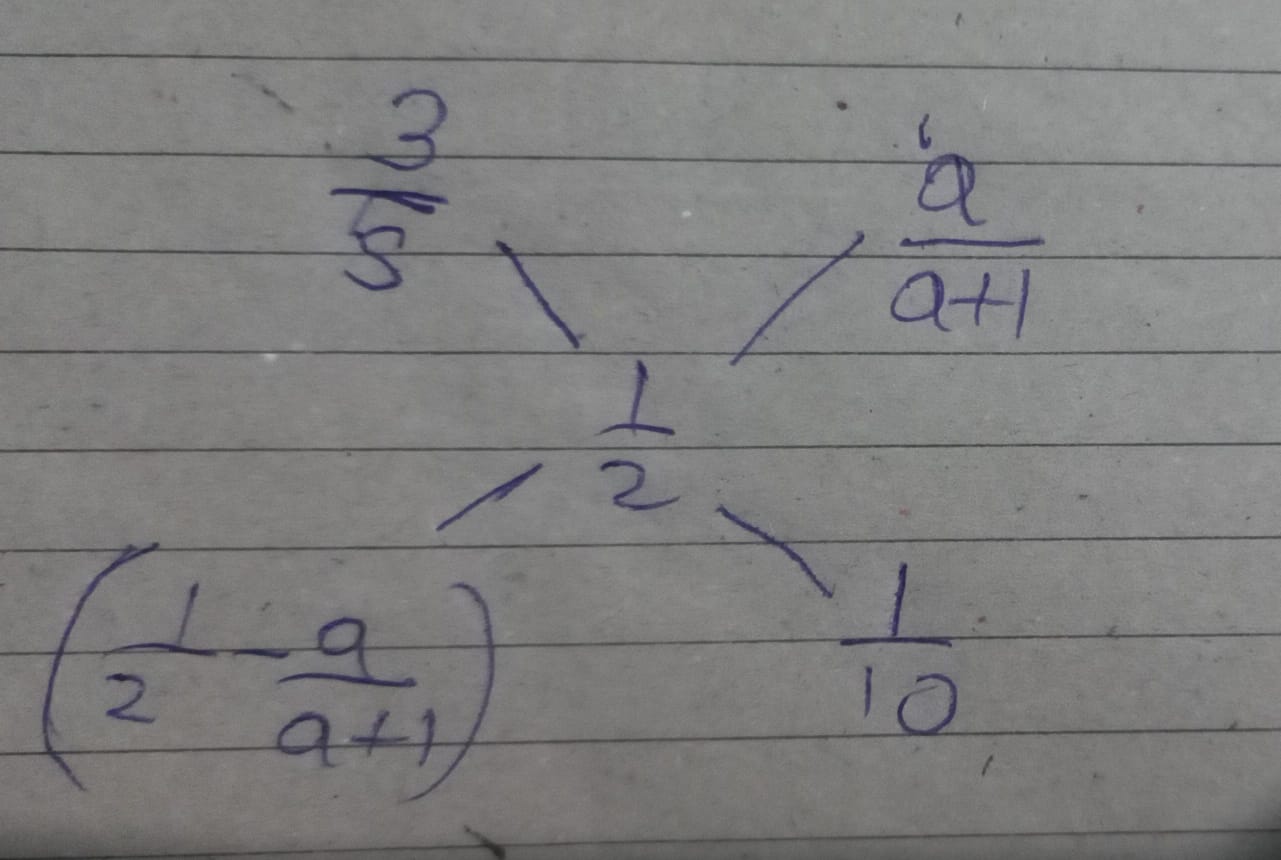 3/5 a/(a+1)
1/2
(1/2 - a/(a+1)) 1/10